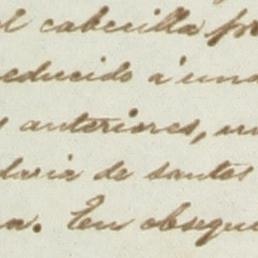 el cabecilla pr
educido á una
s anteriores, un
daria de santos
a. En obsequi